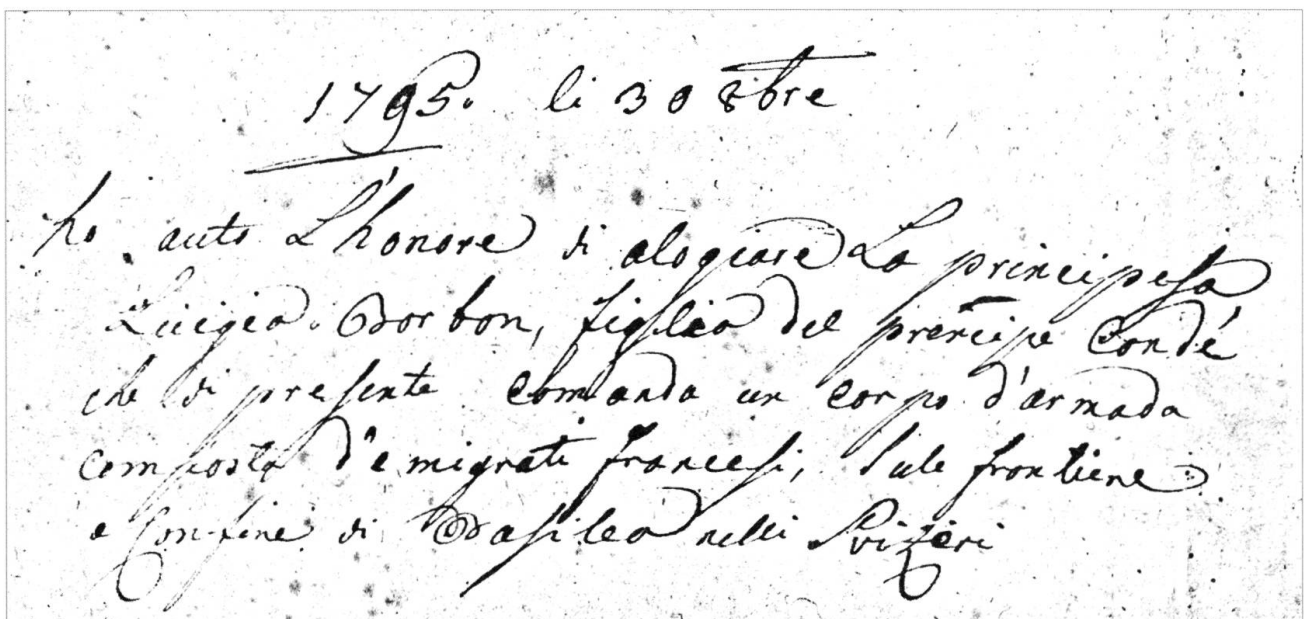 1795. li 30 8bre
ho auto L'honore di alogiare La principesa
Luigia Borbon, figlia del prencipe Condé
che di presente comanda un corpo d'armada
composta d'emigrati francesi, sule frontiere
e confine di Basilea nelli Svizeri